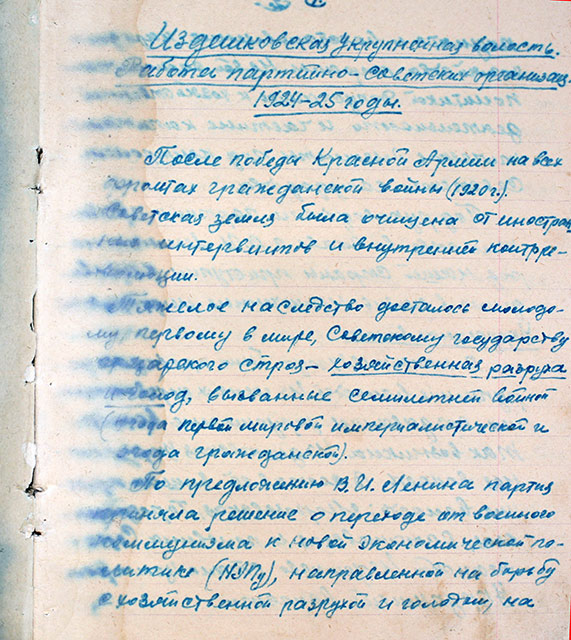 Издешковская укрупнённая волость.
Работа партийно-советских организац.
1924-25 годы.
После победы Красной Армии на всех
фронтах гражданской войны (1920г.).
Советская земля была очищена от иностран
ных интервентов и внутренней контрре-
волюции.
Тяжелое наследство досталось молодо-
му, первому в мире, Советскому государству
от царского строя - хозяйственная разруха
и голод, вызванные семилетней войной
(года первой мировой империалистической и
года гражданской).
По предложению В.И. Ленина партия
приняла решение о переходе от военного
коммунизма к новой экономической по-
литике (НЭПу), направленной на борьбу
с хозяйственной разрухой и голодом, на